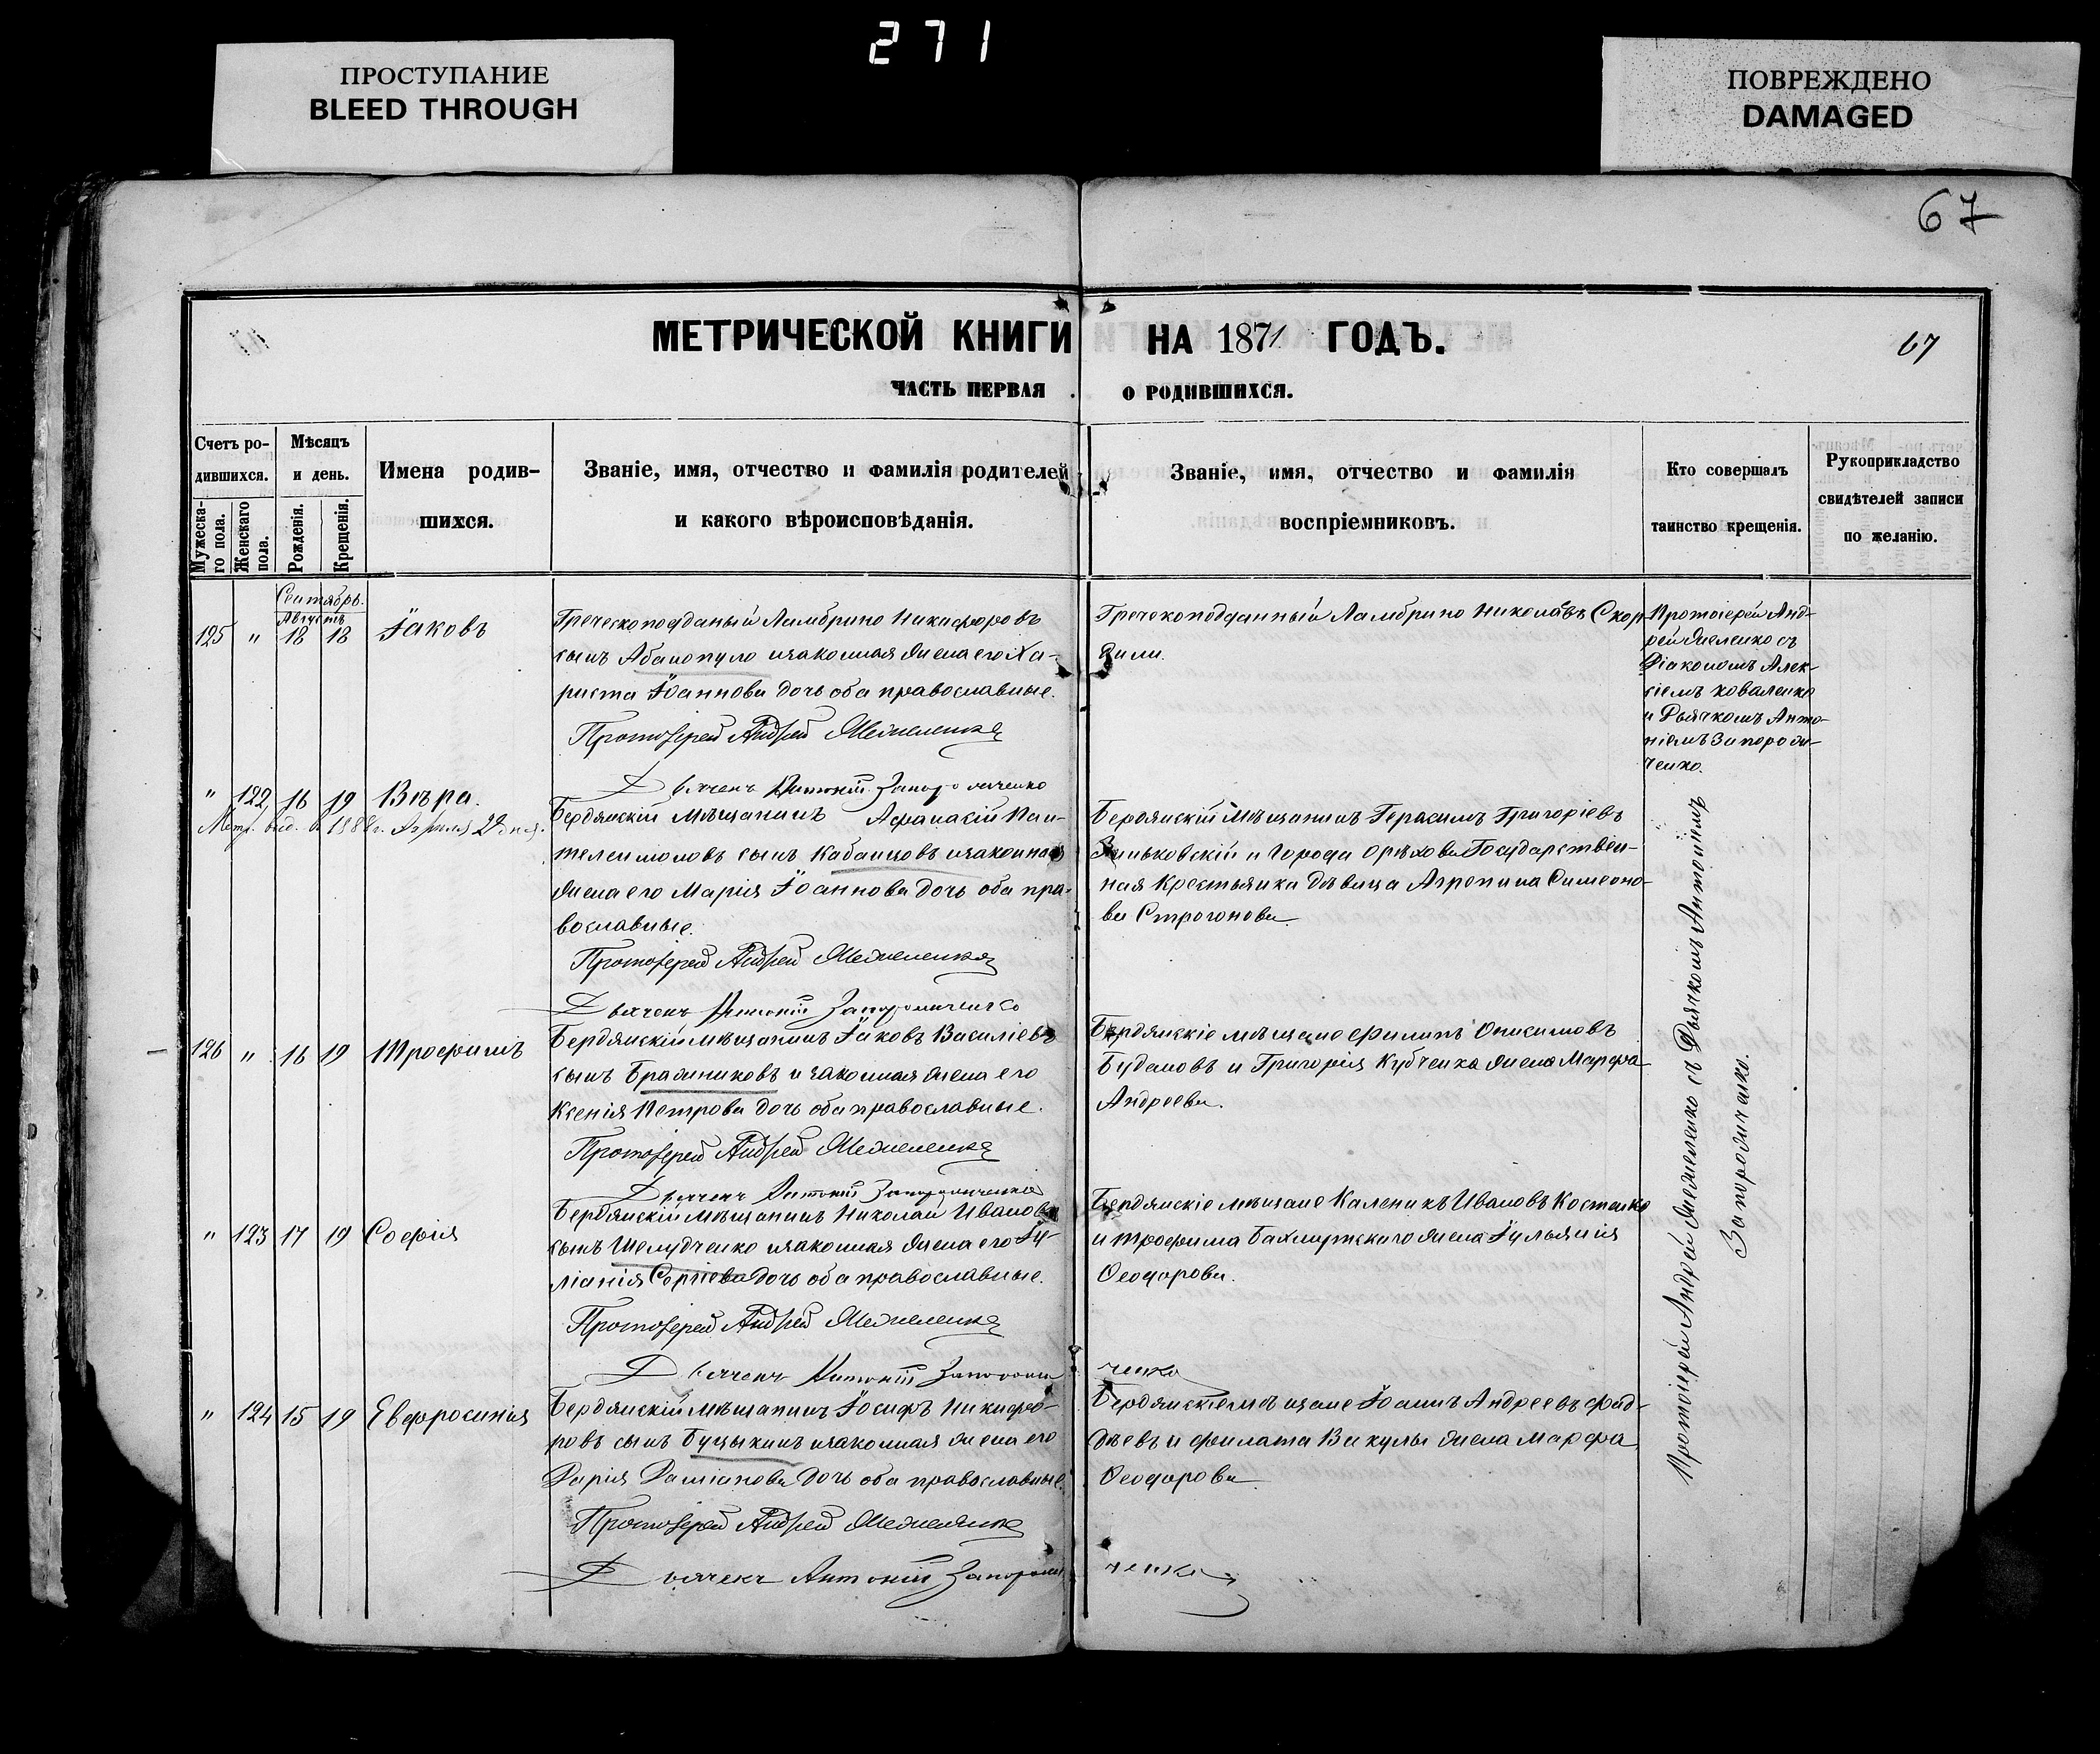 271
ПРОСТУПАНИЕ
BLEED THROUGH
ПОВРЕЖДЕНО
DAMAGED
67
МЕТРИЧЕСКОЙ КНИГИ НА 1871 ГОДЪ.
67
ЧАСТЬ ПЕРВАЯ О РОДИВШИХСЯ.
Счетъ ро-
дившихся.
Мужеска-
го пола.
Женскаго
пола.
Мѣсяцъ
и день.
Рожденія.
Крещенія.
Имена родив-
шихся.
Званіе, имя, отчество и фамилія родителей
и какого вѣроисповѣданія.
Званіе, имя, отчество и фамилія
воспріемниковъ.
Кто совершалъ
таинство крещенія.
Рукоприкладство
свидѣтелей записи
по желанію.
Сентябрь.
Августъ
125 " 18 18 Іаковъ
Греческоподданый Ламбрино Никифоровъ
сынъ Абанопуло изаконная жена его Ха-
риста Іоаннова дочь оба православные.
Протоіерей Андрей
Дьячекъ Антоній Запорожченко
Греческоподданный Ламбрино Николаевъ Скор-
зили.
Протоіерей Анд-
рей
Діакономъ Алек-
сіемъ Коваленко
и Дьячкомъ Анто-
ніемъ Запорож-
ченко.
" 122 16 19 Вѣра.
Метр. выд. в 1888 г. Апреля 22 дня.
Бердянскій мѣщанинъ Афанасій Пан-
телеимоновъ сынъ Кабанцовъ изаконная
жена его Марія Іоаннова дочь оба пра-
вославные.
Протоіерей Андрей
Дьячекъ Антоній Запорожченко
Бердянскій мѣщанинъ Герасимъ Григоріевъ
Зиньковскій и Города Орѣхова Государствен-
ная Крестьянка дѣвица Агрепина Симеоно-
ва Строгонова
126 " 16 19 Трофимъ
Бердянскій мѣщанинъ Іаковъ Василіевъ
сынъ Бражниковъ и законная жена его
Ксенія Петрова дочь оба православные.
Протоіерей Андрей
Дьячекъ Антоній Запорожченко
Бердянскіе мѣщане Филипъ Онисимовъ
Будановъ и Григорія Кубченка жена Марфа
Андреева.
" 123 17 19 Софія
Бердянскій мѣщанинъ Николай Ивановъ
сынъ Шелудченко изаконная жена его Іу-
ліанія Сергіева дочь оба православные.
Протоіерей Андрей
Дьячекъ Антоній Запорожченко
Бердянскіе мѣщане Каленикъ Ивановъ Костенко
и Трофима Бахмутскаго жена Іульянія
Ѳеодорова.
" 124 15 19 Евфросинія
Бердянскій мѣщанинъ Іосифъ Никифо-
ровъ сынъ Буцыкинъ изаконная жена его
Дарія Даміанова дочь оба православные.
Протоіерей Андрей
Дьячекъ Антоній Запорожченко
Бердянскіе мѣщане Іоаннъ Андреевъ Фад-
дѣевъ и Филата Вакулы жена Марфа
Ѳеодорова
Протоіерей Андрей съ Дьячкомъ Антоніемъ
Запорожченко.